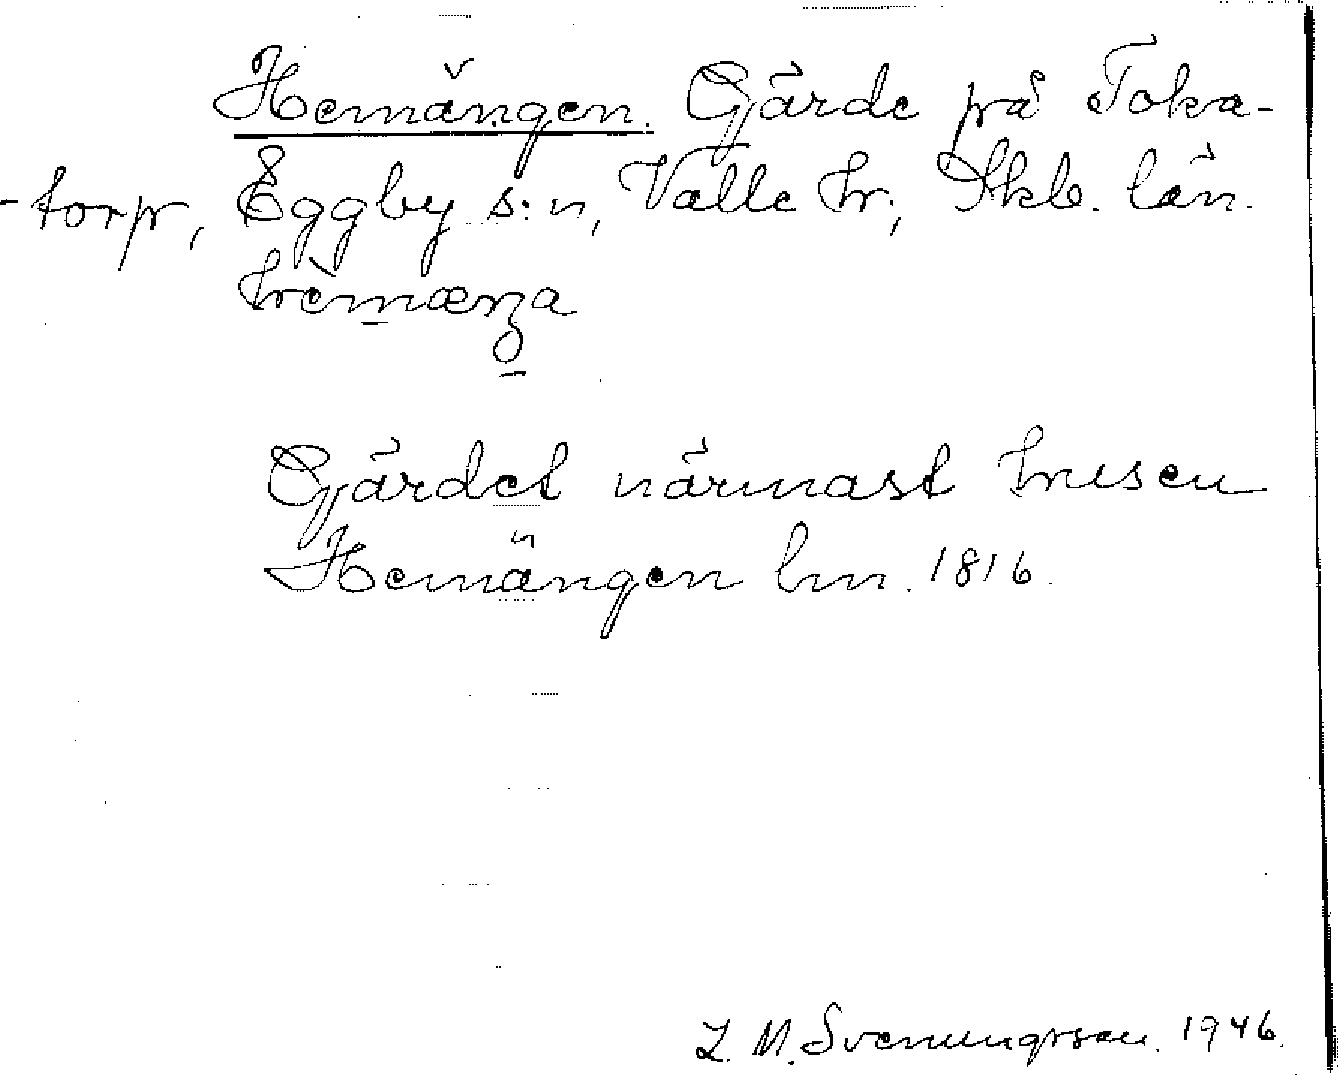 Hemängen. Gärde på Toka-
-torp, Eggby s:n, Valle hr, Skb. län.
hèmænga
Gärdet närmast husen
Hemängen lm. 1816.
L. M. Svenungsson. 1946.